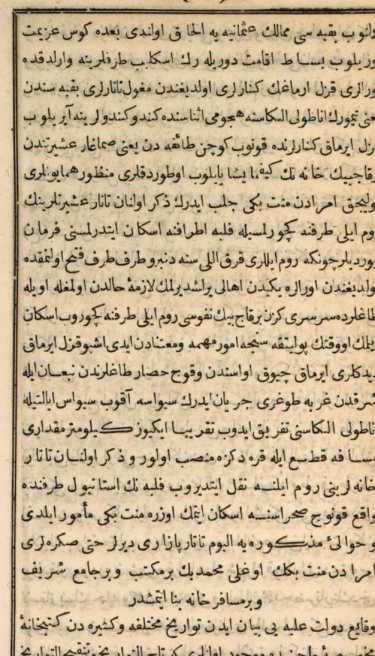 اولنوب بقیه سی ممالك عثمانیه یه الحاق اولندی بعده كوس عزیمت
وریلوب بساط اقامت دوریله رك اسكلیب طرفلرینه وارلدقده
اورالری قزل ارماغك كنارلری اولدیغندن مغول تاتارلری بقیه سندن
یعنی تیمورك اناطولی الكاسنه هجومی اثناسنده كندو كندولرینه آیریلوب
قزل ایرماق كنارلرنده قونوب كوچن طائفه دن یعنی صماغار عشیرتندن
برقاچ بیك خانه نك كیفما یشا یایلوب اوطوردقلری منظور همایونلری
اولیجق امرادن منت بكی جلب ایدرك ذكر اولنان تاتار عشیرتلرینك
روم ایلی طرفنه كچورلمسیله فلبه اطرافنه اسكان ایتدرلمسنی فرمان
بوردیلر چونكه روم ایللری قرق اللی سنه دنبرو طرف طرف فتح اولنمقده
اولدیغندن اورالره یكیدن اهالی یراشدیرلمك لازمهٔ حالدن اولمغله اویله
طاغلرده سرسری كزن برقاچ بیك نفوسی روم ایلی طرفنه كچوروب اسكان
ایتمك اووقتك پولیتقه سنجه امور مهمه ومعتنادن ایدی اشبو قزل ایرماق
دیدكلری ایرماق چبوق اواسندن وقوج حصار طاغلرندن نبعان ایله
شرقدن غربه طوغری جریان ایدرك سیواسه آقوب سیواس ایالتیله
اناطولی الكاسنی تفریق ایدوب تقریبا ایكیوز كیلومتر مقداری
مسافه قطع ایله قره دكزه منصب اولور و ذكر اولنان تاتار
خانه لرینی روم ایلنه نقل ایتدیروب فلبه نك استانبول طرفنده
واقع قونوج صحراسنه اسكان ایتمك اوزره منت بكی مأمور ایلدی
و حوالئ مذكوره یه الیوم تاتار پازاری دیرلر حتی صكره لری
امرادن منت بكك اوغلی محمد بك برمكتب و برجامع شریف
و برمسافرخانه بنا ایتمشدر
وقایع دولت علیه یی بیان ایدن تواریخ مختلفه و كثیره دن كتبخانهٔ